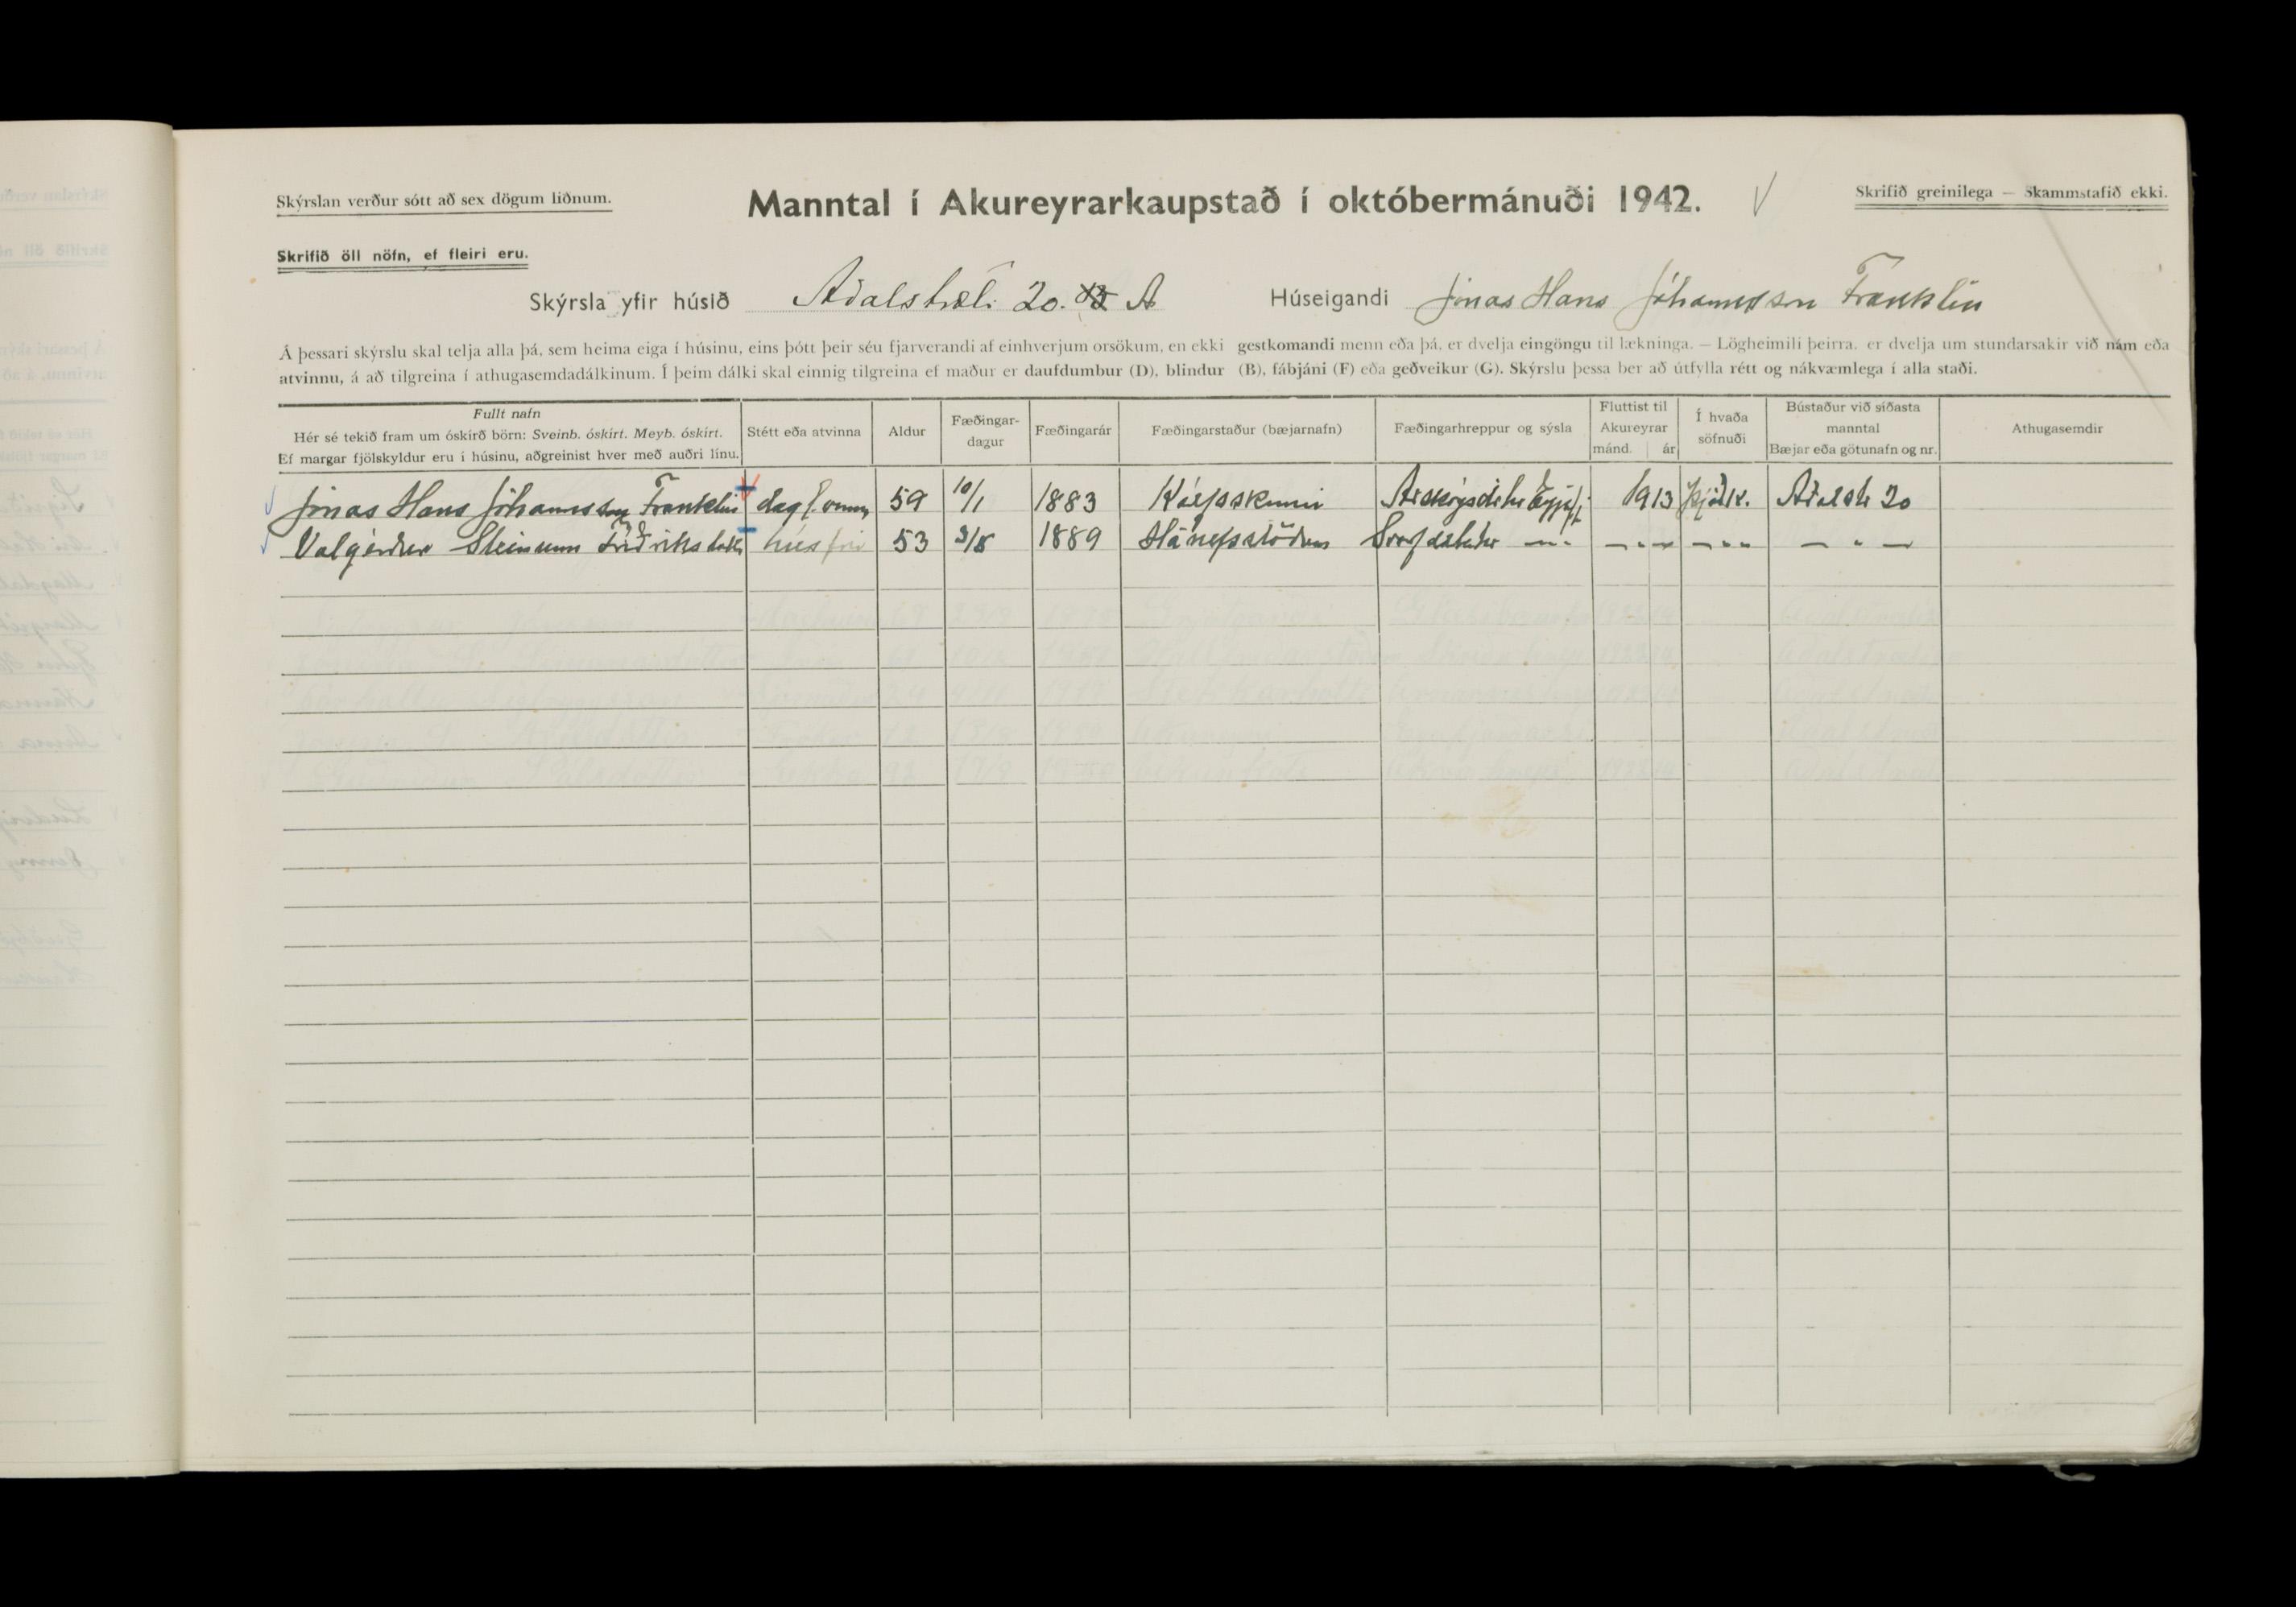 Skýrslan verður sótt að sex dögum liðnum.
Manntal í Akureyrarkaupstað í októbermánuði 1942.
Skrifið greinilega — Skammstafið ekki.
Skrifið öll nöfn, ef fleiri eru.
Skýrsla yfir húsið Aðalstræti 20. A
Húseigandi Jónas Hans Jóhannsson Franklín
Á þessari skýrslu skal telja alla þá, sem heima eiga í húsinu, eins þótt þeir séu fjarverandi af einhverjum orsökum, en ekki gestkomandi menn eða þá, er dvelja eingöngu til lækninga. — Lögheimili þeirra. er dvelja um stundarsakir við nám eða
atvinnu, á að tilgreina í athugasemdadálkinum. Í þeim dálki skal einnig tilgreina ef maður er daufdumbur (D), blindur (B), fábjáni (F) eða geðveikur (G). Skýrslu þessa ber að útfylla rétt og nákvæmlega í alla staði.
Fullt nafn
Hér sé tekið fram um óskírð börn: Sveinb. óskírt. Meyb. óskírt.
Ef margar fjölskyldur eru í húsinu, aðgreinist hver með auðri línu.
Stétt eða atvinna
Aldur
Fæðingar-
dagur
Fæðingarár
Fæðingarstaður (bæjarnafn)
Fæðingarhreppur og sýsla
Fluttist til
Akureyrar
mánd. ár
Í hvaða
söfnuði
Bústaður við síðasta
manntal
Bæjar eða götunafn og nr.
Athugasemdir
Jónas Hans Jóhannsson Franklín 59 10/1 1883 Kálfsskinni 1913 þjóðk. Aðalstr 20
Valgerður Steinunn Friðriksdóttir húsfrú 53 3/8 1889 Hánefsstöðum — " — — " — — " " — " —